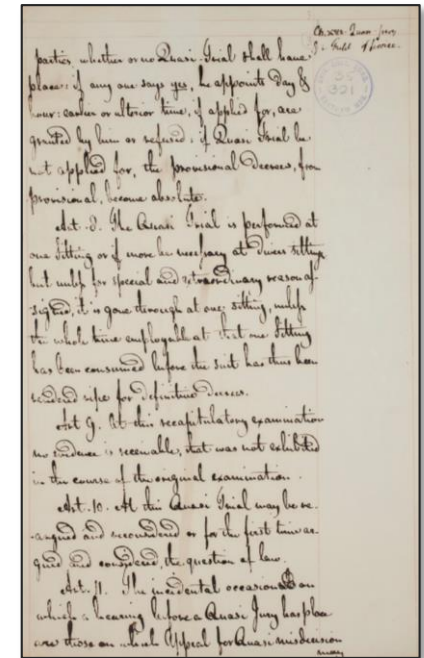 Ch. XXII. Quasi Jury
§. Field of Service.
parties, whether or no Quasi-Trial shall have
place: if any one says yes, he appoints day &
hour: earlier or ulterior time, if applied for, are
granted by him or refused: if Quasi Trial be
not applied for, the provisional Decrees, from
provisional, become absolute.
Art. 8. The Quasi Trial is performed at
one Sitting or if more be necessary at divers sittings
but unless for special and extraordinary reason as-
signed, it is gone through at one sitting, unless
the whole time employable at that one Sitting
has been consumed before the suit has thus been
rendered ripe for definitive Decrees.
Art 9. At this recapitulatory examination
no evidence is receivable, that was not exhibited
in the course of the original examination.
Art. 10. At this Quasi Trial may be re-
-argued and reconsidered or for the first time ar-
gued and considered, the question of law.
Art. 11. The incidental occasions on
which a hearing before a Quasi Jury has place
are those on which Appeal for Quasi-misdecision
may